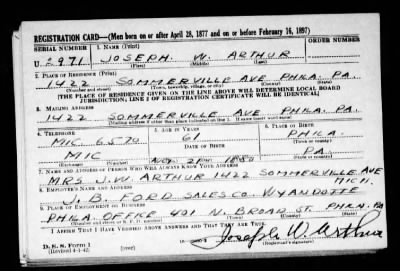 REGISTRATION CARD—(Men born on or after April 28, 1877 and on or before February 16, 1897)
SERIAL NUMBER 1. NAME (Print) ORDER NUMBER
U 2971 JOSEPH. W. ARTHUR
(First) (Middle) (Last)
2. PLACE OF RESIDENCE (Print)
1422 SOMMERVILLE AVE PHILA. PA.
(Number and street) (Town, township, village, or city) (County) (State)
[THE PLACE OF RESIDENCE GIVEN ON THE LINE ABOVE WILL DETERMINE LOCAL BOARD
JURISDICTION; LINE 2 OF REGISTRATION CERTIFICATE WILL BE IDENTICAL]
3. MAILING ADDRESS
1422 SOMMERVILLE AVE PHILA. PA.
[Mailing address if other than place indicated on line 2. If same insert word same]
4. TELEPHONE 5. AGE IN YEARS 6. PLACE OF BIRTH
MIC. 6570 61 PHILA.
DATE OF BIRTH (Town or county)
MIC NOV 2 1880 PA.
(Exchange) (Number) (Mo.) (Day) (Yr.) (State or country)
7. NAME AND ADDRESS OF PERSON WHO WILL ALWAYS KNOW YOUR ADDRESS
MRS J.W. ARTHUR 1422 SOMMERVILLE AVE
8. EMPLOYER'S NAME AND ADDRESS MICH.
J. B. FORD SALES CO. WYANDOTTE
9. PLACE OF EMPLOYMENT OR BUSINESS
PHILA. OFFICE 401 N. BROAD ST. PHILA. PA
(Number and street or R. F. D. number) (Town) (County) (State)
I AFFIRM THAT I HAVE VERIFIED ABOVE ANSWERS AND THAT THEY ARE TRUE.
Joseph W. Arthur
D. S. S. Form 1
(Revised 4-1-42) (over) (Registrant's signature)